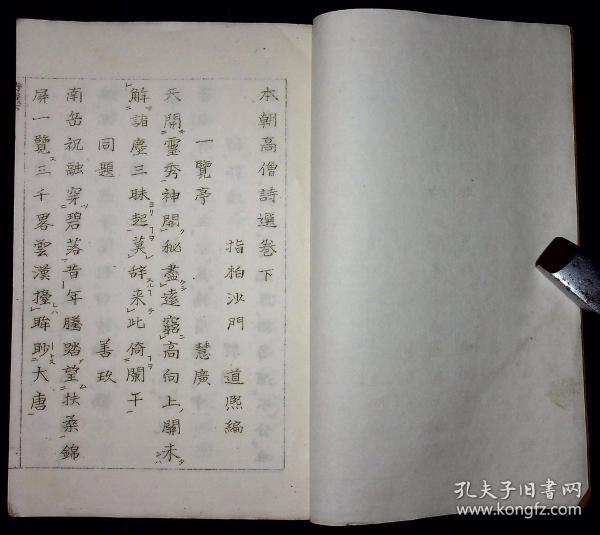 本朝高僧詩選巻下
指柏沙門 道煕編
一覽亭 慧廣
天開靈秀神開秘盡遠窮高向上關未
解諸塵三昧起莫辞来此倚闌干
同題 善玖
南岳祝融穿碧落昔年騰踏望扶桑錦
屏一覽三千畧雲漢擡眸眇大唐
孔夫子旧书网
www.kongfz.com